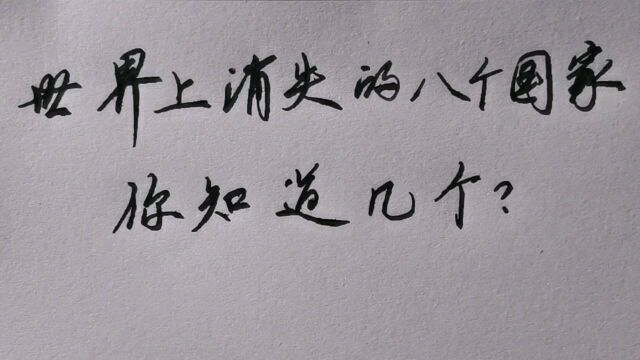 世界上消失的八个国家
你知道几个?